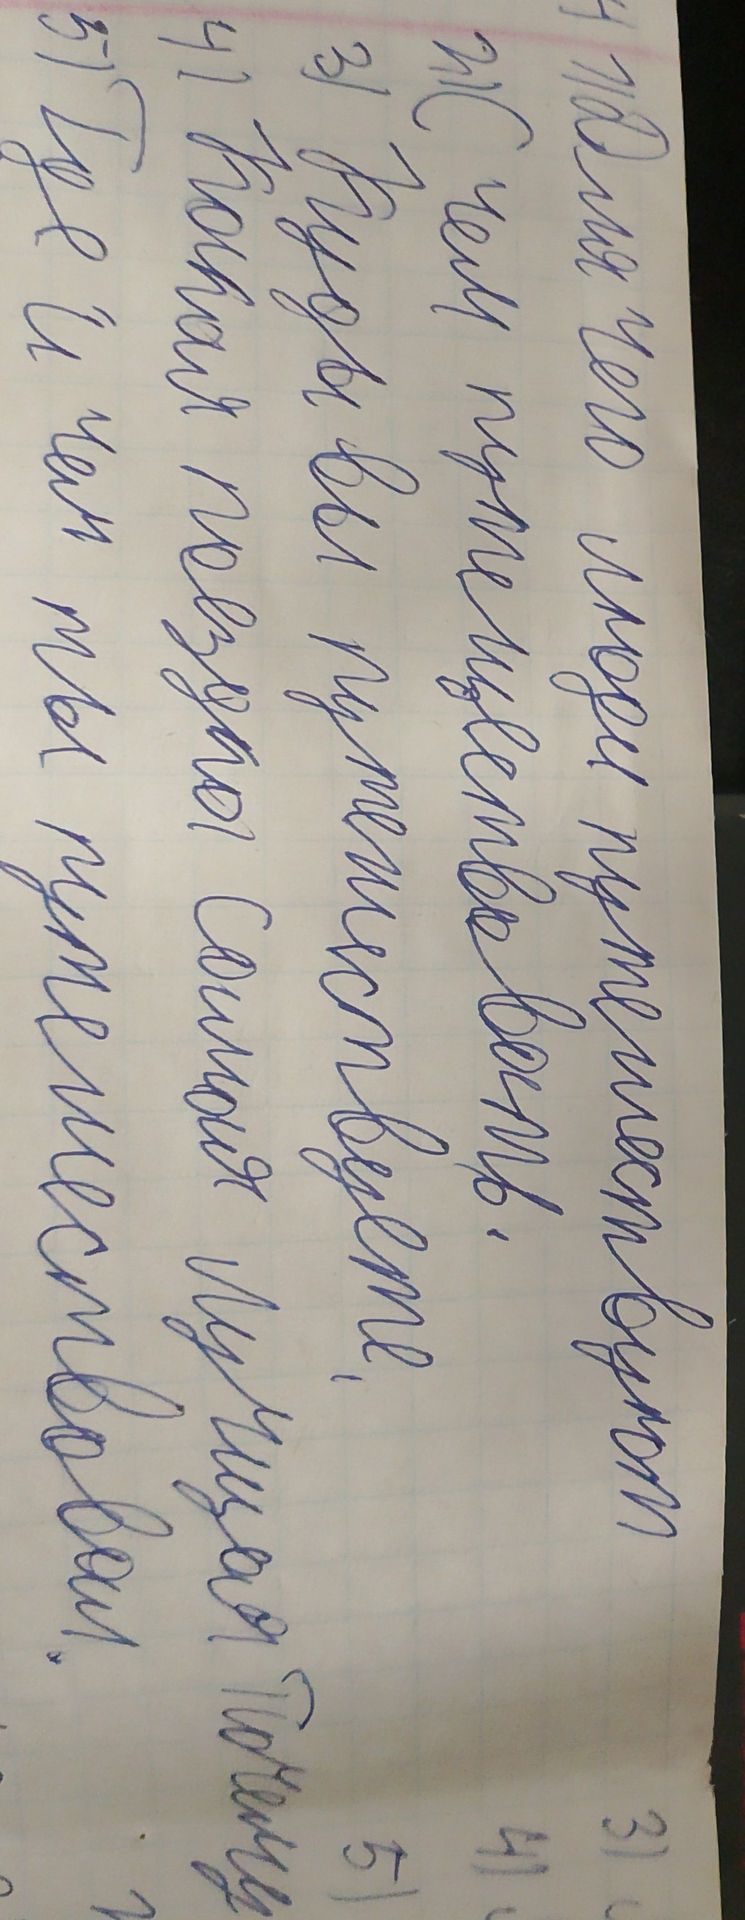 1) Для чего люди путешествуют
2) С чем путешествовать.
3) Куды вы путешествуете,
4) Какая поездка самая лучшая Почему
5) Где и чем ты путешествовал.
3)
4)
5)